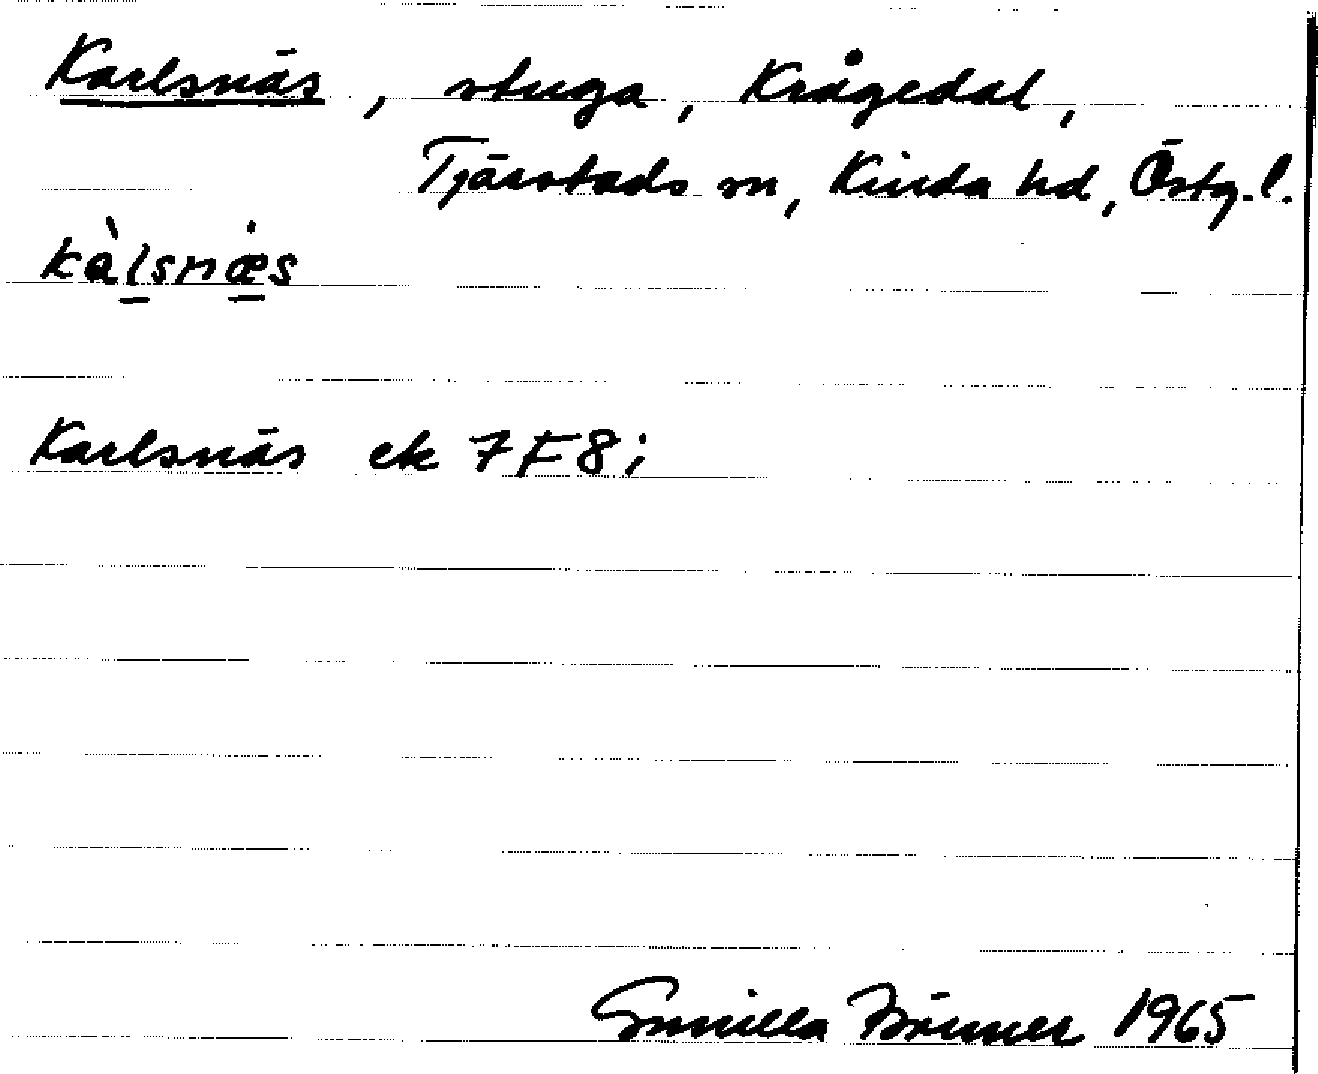 Karlsnäs, stuga, Krågedal,
Tjärstads sn, Kinda hd, Östg. l.
kàlsnæ̇s
Karlsnäs ek 7F8i
Gunilla 1965